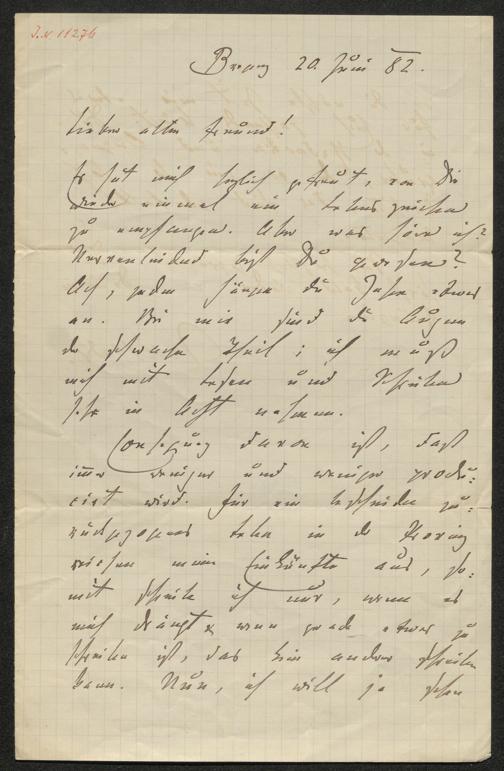 I.N 11276
20. Juni 82.
Lieber alter Freund!
Es hat mich herzlich gefreut, von Dir
wieder einmal ein Lebenszeichen
zu empfangen. Aber was höre ich?
Nervenleidend bist Du gewesen?
Ach, jedem hängen die Jahre etwas
an. Bei mir sind die Augen
der schwache Theil; ich muß
mich mit Lesen und Schreiben
sehr in Acht nehmen.
Consequenz davon ist, daß
immer weniger und weniger produ-
cirt wird. Für ein bescheiden zu-
rückgezogenes Leben in der Provinz
reichen meine Einkünfte aus, so-
mit schreibe ich nur, wenn es
mich drängt u. wenn gerade etwas zu
schreiben ist, das kein anderer schreiben
kann. Nun, ich will ja schon